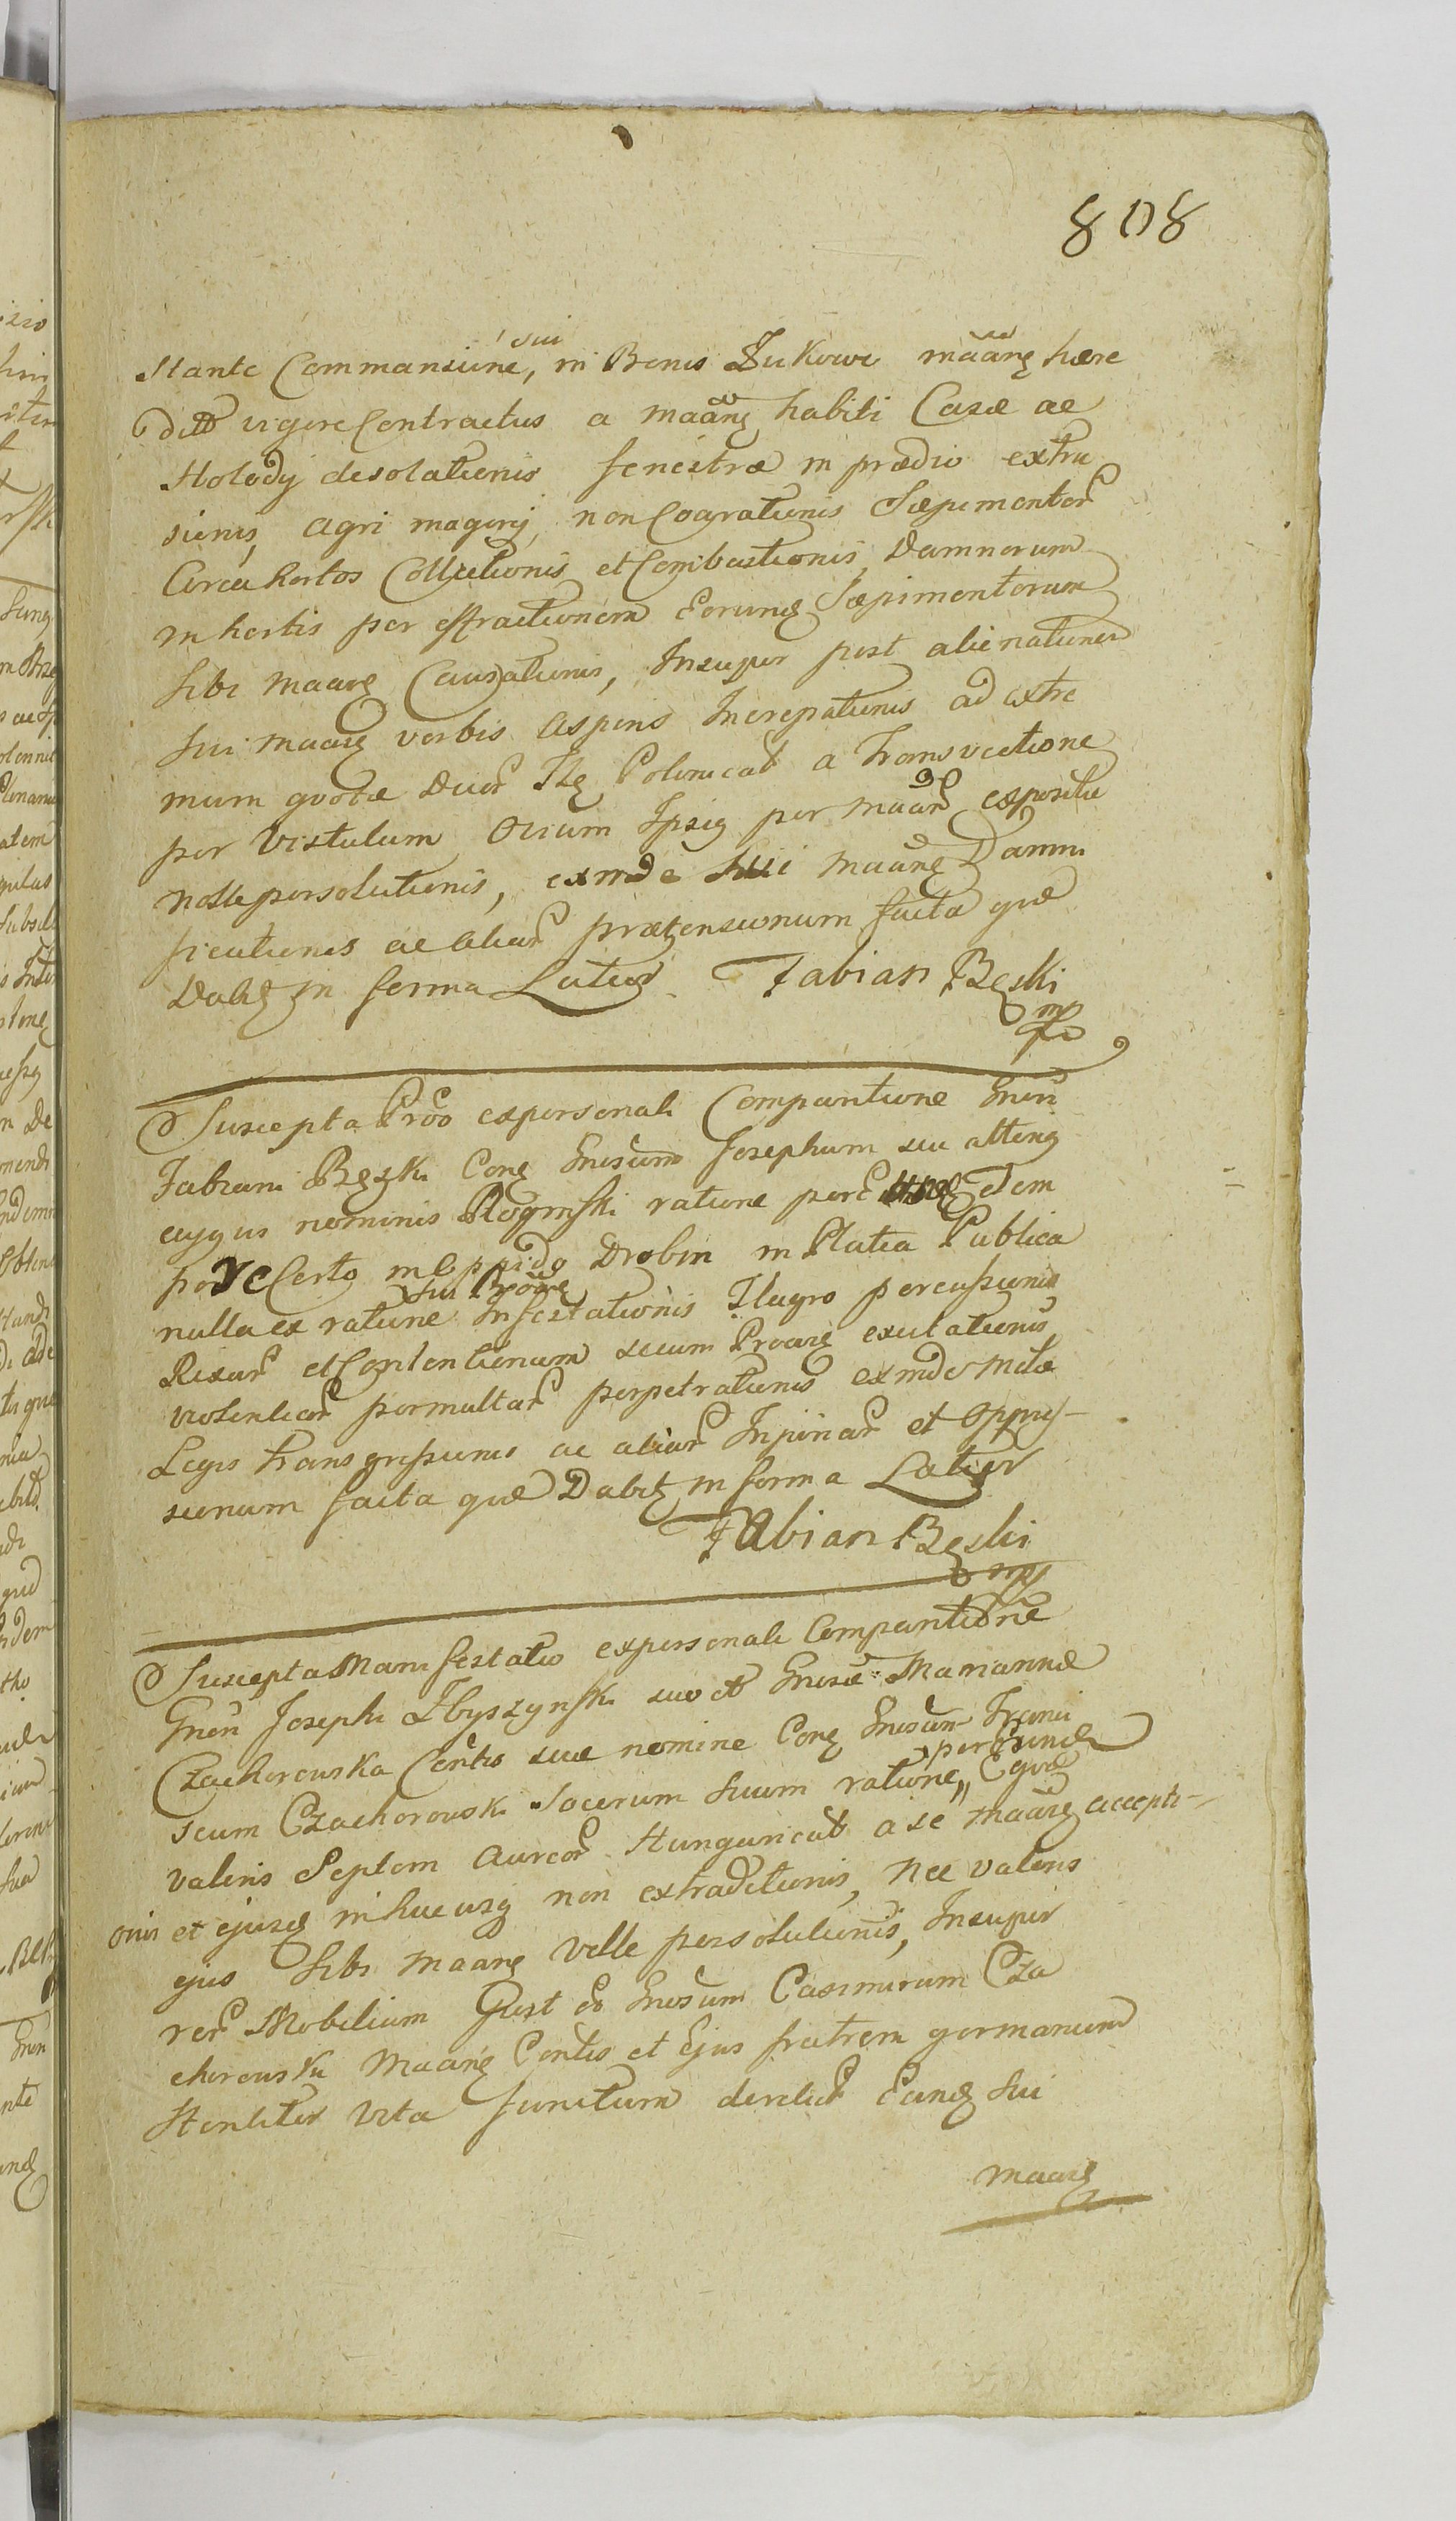 808
Stante Commansione, sui in Bonis Zukowo maanę hære
ditt vigore Contractus a maanę habiti Casæ ac
Stolody desolationis fenestræ in prædio extru
sionis, agri magonij, non Coarationis Sæpimentor
Circa hortos Collutionis et Combustionis, Damnorum
in hortis per effractionem Eorunq Sæpimentorum
sibi maanę Causationis, Insuper post alienationem
sui maanę verbis asperis Increpationis ad extre
mum quotæ Duor Polonical a Transvectione
per Vistulum Ovium Ipsiq per maan expositæ
nolle persolutionis, exinde sui maanę Damni
ficationis ac aliar prætensionum facta que
Dabit in forma Latior Fabian Bęski
mp
Suscepta Pro ex personali Comparitione Gnen
Fabiani Bęski Conq Gnosum Josephum seu alteriq
cujus nominis Rogynski ratione per edem
pore Certo in Oppido Drobin in Platea Publica
nulla ex ratione sui Proanę Infestationis Flagro percussionis
Rixar et Contentionum secum Proanę excitationis
violentiar permultar perpetrationis exinde metæ
Legis transgressionis ac aliar Injuriar et Oppres-
sionum facta que Dabit in forma Latior
Fabian Bęski
mp
Suscepta Manifestatio ex personali Comparitione
Gnen Josephi Zbyszynski suo et Gnosæ Mariannæ
Czachorowska Contis suæ nomine Conq Gnosum Franci
scum Czachorowski Socerum suum ratione, per Eund Equæ
valoris Septem aureor Hungarical a se maanę accepti-
onis et ejusq in hucusq non extraditionis, nec valoris
ejus sibi maanę velle persolutionis, Insuper
rer Mobilium Post Gnosum Casimirum Cza
chorowski maanę Contis et Ejus fratrem germanum
Steriliter vita functum derelict Eunq sui
maanę